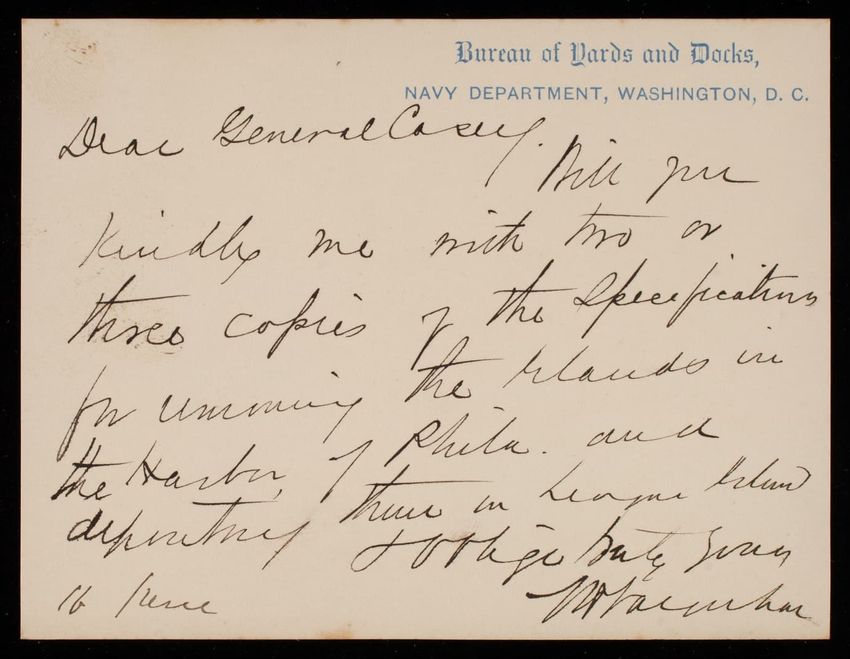 Bureau of Yards and Docks,
NAVY DEPARTMENT, WASHINGTON, D. C.
Dear General Casey.
Will you
kindly me with two or
three copies of the Specifications
for removing the Islands in
the Harbor of Phila. and
depositing them on League Island
& oblige Truly Yours
16 June
N H Farquhar